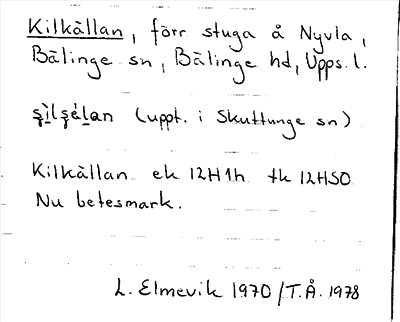 Kilkällan, förr stuga å Nyvla,
Bälinge sn, Bälinge hd, Upps. l.
şìlşélan (uppt. i Skuttunge sn)
Kilkällan ek 12H1h tk 12HSO
Nu betesmark.
L. Elmevik 1970 /T.Å. 1978